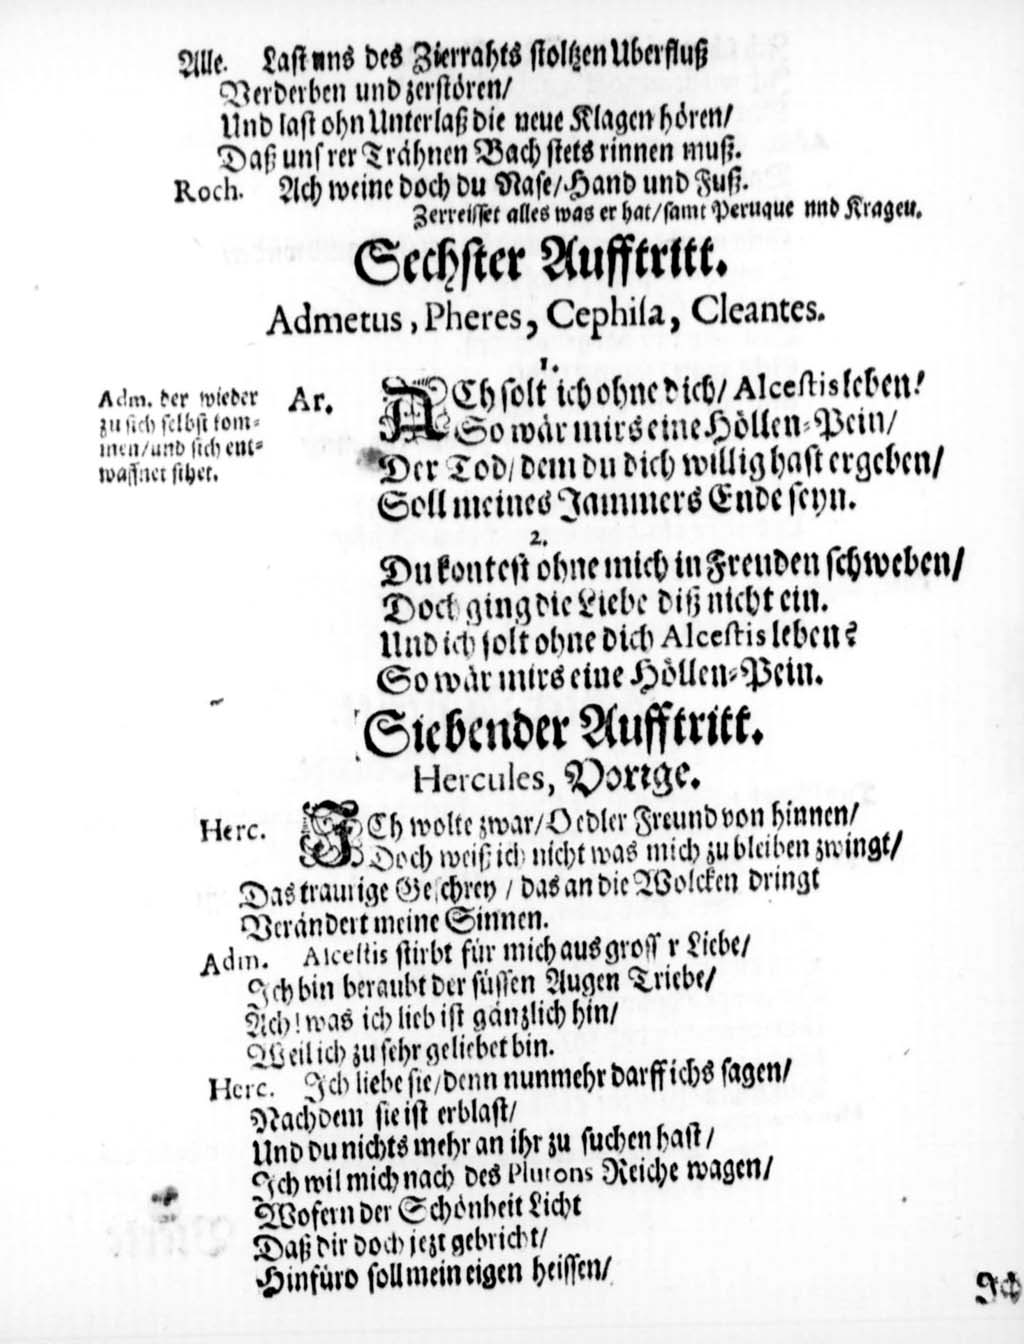 Alle. Last uns des Zierrahts stoltzen Uberfluß
Verderben und zerstören/
Und last ohn Unterlaß die neue Klagen hören/
Daß unsrer Trähnen Bach stets rinnen muß.
Roch. Ach weine doch du Nase/Hand und Fuß.
Zerreisset alles was er hat/samt Peruque und Kragen.
Sechster Aufftritt.
Admetus, Pheres, Cephisa, Cleantes.
1.
Adm. der wieder
zu sich selbst kom=
men/und sich ent=
waffnet sihet.
Ar. ACh solt ich ohne dich/ Alcestis leben!
So wär mirs eine Höllen=Pein/
Der Tod/dem du dich willig hast ergeben/
Soll meines Jammers Ende seyn.
2.
Du kontest ohne mich in Freuden schweben/
Doch ging die Liebe diß nicht ein.
Und ich solt ohne dich Alcestis leben?
So wär mirs eine Höllen=Pein.
Siebender Aufftritt.
Hercules, Vorige.
Herc. ICh wolte zwar/Oedler Freund von hinnen/
Doch weiß ich nicht was mich zu bleiben zwingt/
Das traurige Geschrey / das an die Wolcken dringt
Verändert meine Sinnen.
Adm. Alcestis stirbt für mich aus gross r Liebe/
Ich bin beraubt der süssen Augen Triebe/
Ach! was ich lieb ist gänzlich hin/
Weil ich zu sehr geliebet bin.
Herc. Ich liebe sie/denn nunmehr darff ichs sagen/
Nachdem sie ist erblast/
Und du nichts mehr an ihr zu suchen hast/
Ich wil mich nach des Plutons Reiche wagen/
Wofern der Schönheit Licht
Daß dir doch jezt gebricht/
Hinfüro soll mein eigen heissen/
Ich